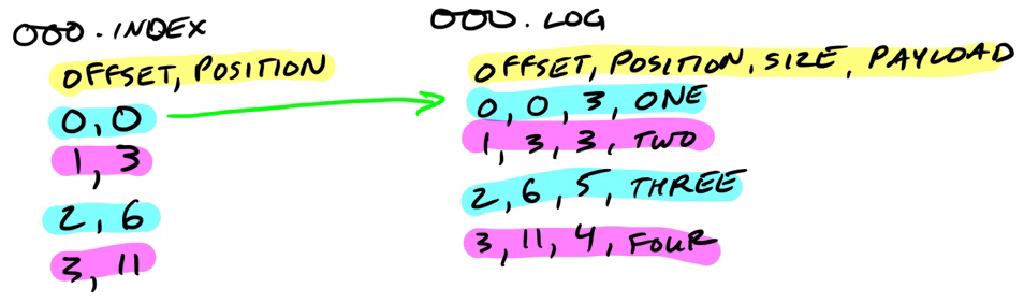 000.INDEX
OFFSET, POSITION
0, 0
1, 3
2, 6
3, 11
000.LOG
OFFSET, POSITION, SIZE, PAYLOAD
0, 0, 3, ONE
1, 3, 3, TWO
2, 6, 5, THREE
3, 11, 4, FOUR